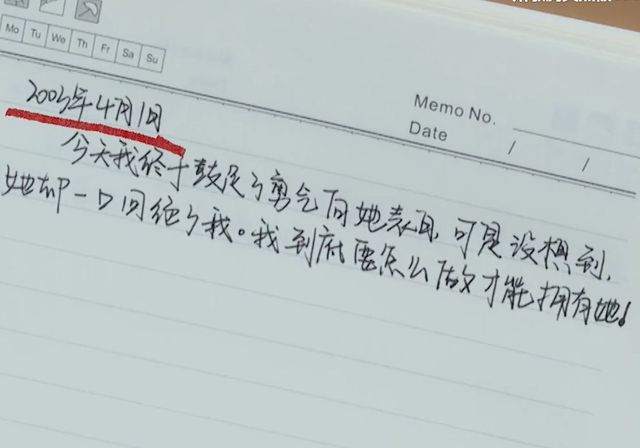 Mo Tu We Th Fr Sa Su
Memo No.
Date / /
2003年4月1日
今天我终于鼓足了勇气向她表白,可是没想到,
她却一口回绝了我。我到底要怎么做才能拥有她!